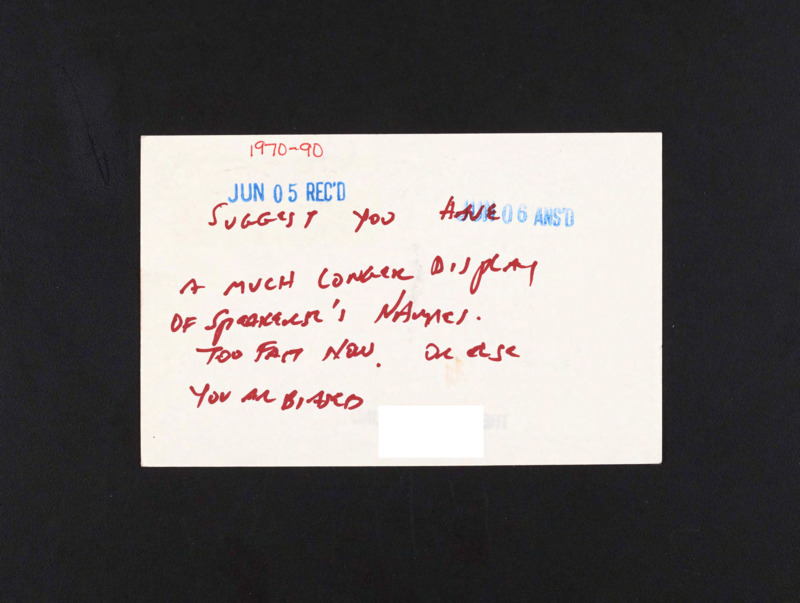 1970-90
JUN 05 REC'D
JUN 06 ANS'D
SUGGEST YOU HAVE
A MUCH LONGER DISPLAY
OF SPEAKERSR'S NAMES.
TOO FAST NOW. OR ELSE
YOU AR BIASED